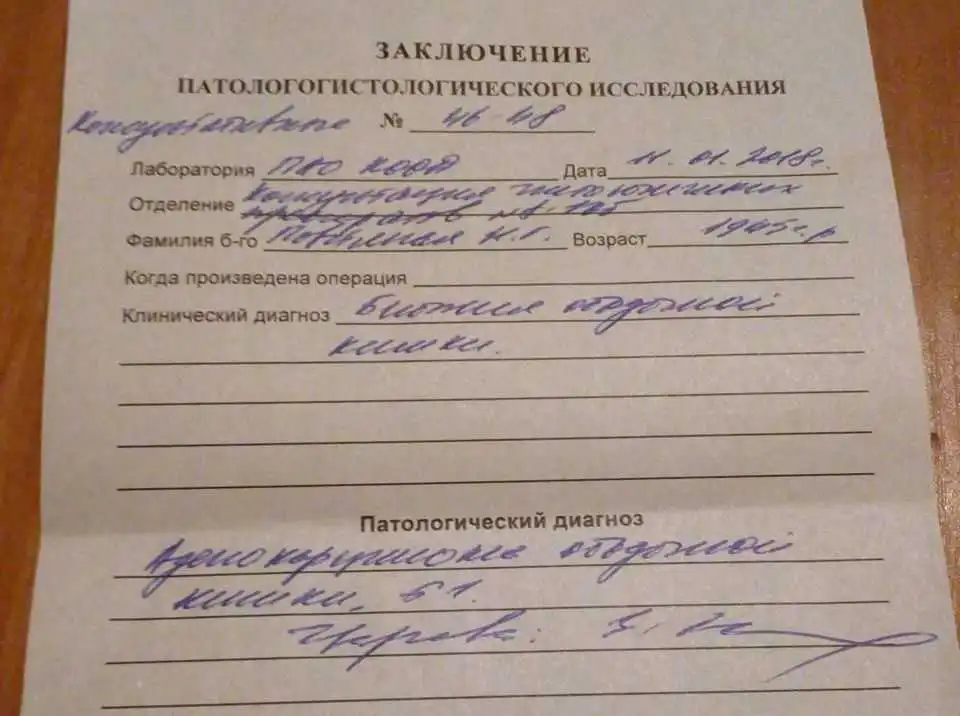 ЗАКЛЮЧЕНИЕ
ПАТОЛОГОГИСТОЛОГИЧЕСКОГО ИССЛЕДОВАНИЯ
Консультативное № 46-48
Лаборатория ПАО КООД Дата 11.01.2018г.
Отделение Консультация гистологических
препаратов №8-105
Фамилия б-го Н.Г. Возраст 1945г.р
Когда произведена операция
Клинический диагноз Биопсия ободочной
кишки.
Патологический диагноз
Аденокарцинома ободочной
кишки, G1.